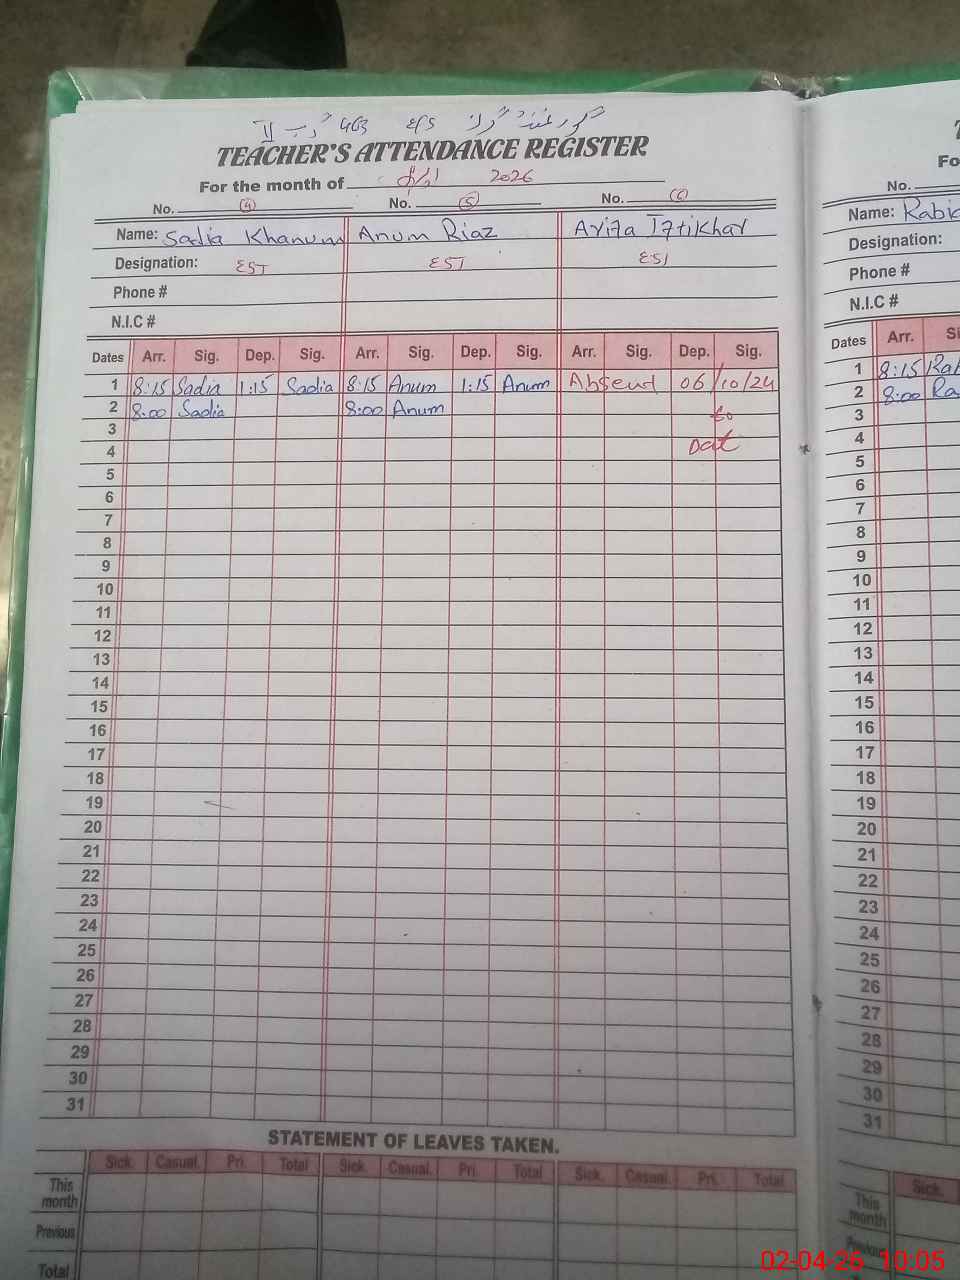 گورنمنٹ گرلز E/S 463 گ ب II
TEACHER'S ATTENDANCE REGISTER
For the month of اپریل 2026
No. (4) No. (5) No. (6)
Name: Sadia Khanum Anum Riaz Arifa Iftikhar
Designation: EST EST EST
Phone #
N.I.C #
Dates Arr. Sig. Dep. Sig. Arr. Sig. Dep. Sig. Arr. Sig. Dep. Sig.
1 8:15 Sadia 1:15 Sadia 8:15 Anum 1:15 Anum Absend 06/10/24
2 8:00 Sadia 8:00 Anum to
3
4 Dat
5
6
7
8
9
10
11
12
13
14
15
16
17
18
19
20
21
22
23
24
25
26
27
28
29
30
31
STATEMENT OF LEAVES TAKEN.
Sick. Casual. Pri. Total Sick. Casual. Pri. Total Sick. Casual. Pri. Total
This month
Previous
Total
Fo
No.
Name: Rabi
Designation:
Phone #
N.I.C #
Dates Arr. Si
1 8:15 Rab
2 8:00 Ra
3
4
5
6
7
8
9
10
11
12
13
14
15
16
17
18
19
20
21
22
23
24
25
26
27
28
29
30
31
Sick.
This month
Previous
02-04-26 10:05